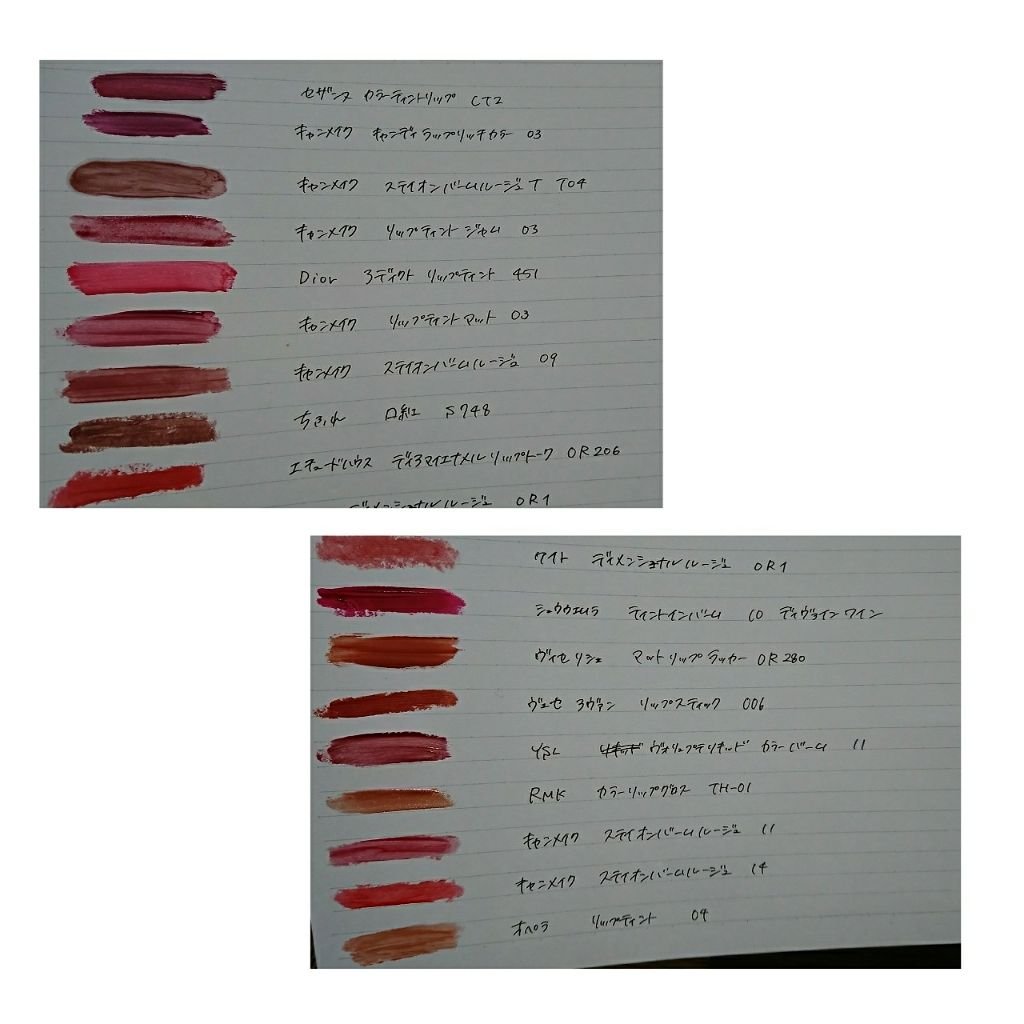 セザンヌ カラーティントリップ CT2
キャンメイク キャンディラップリッチカラー 03
キャンメイク ステイオンバームルージュT T04
キャンメイク リップティントジャム 03
Dior アディクト リップティント 451
キャンメイク リップティントマット 03
キャンメイク ステイオンバームルージュ 09
ちふれ 口紅 S748
エチュードハウス ディアマイエナメルリップトーク OR206
ディメンショナルルージュ OR1
ケイト ディメンショナルルージュ OR1
シュウウエムラ ティントインバーム 10 ディヴァインワイン
ヴィセリシェ マットリップラッカー OR280
ヴィセ アヴァン リップスティック 006
YSL ヴォリュプテリキッドカラーバーム 11
RMK カラーリップグロス TH-01
キャンメイク ステイオンバームルージュ 11
キャンメイク ステイオンバームルージュ 14
オペラ リップティント 04